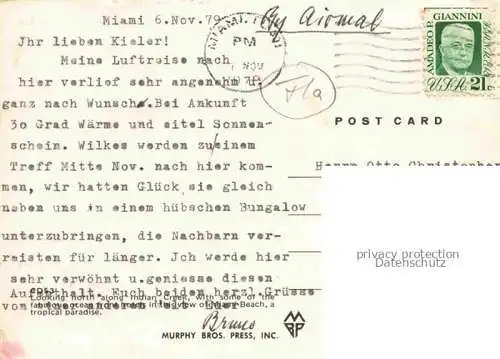 Miami 6.Nov.79
By Airmail
Jhr lieben Kieler!
Meine Luftreise nach
hier verlief sehr angenehm u.
ganz nach Wunsch. Bei Ankunft
3o Grad Wärme und eitel Sonnen-
schein. Wilkes werden zu einem
Treff Mitte Nov. nach hier kom-
men, wir hatten Glück sie gleich
neben uns in einem hübschen Bungalow
unterzubringen, die Nachbarn ver-
reisten für länger. Jch werde hier
sehr verwöhnt u.geniesse diesen
Aufenthalt. Euch beiden herzl.Grüsse
Looking north along Indian Creek, with some of the
tropical paradise.
Bruno
MURPHY BROS. PRESS, INC.
MIAMI
PM
NOV
Fla
AMADEO P. GIANNINI
USA 21c
POST CARD
Herrn Otto
privacy protection